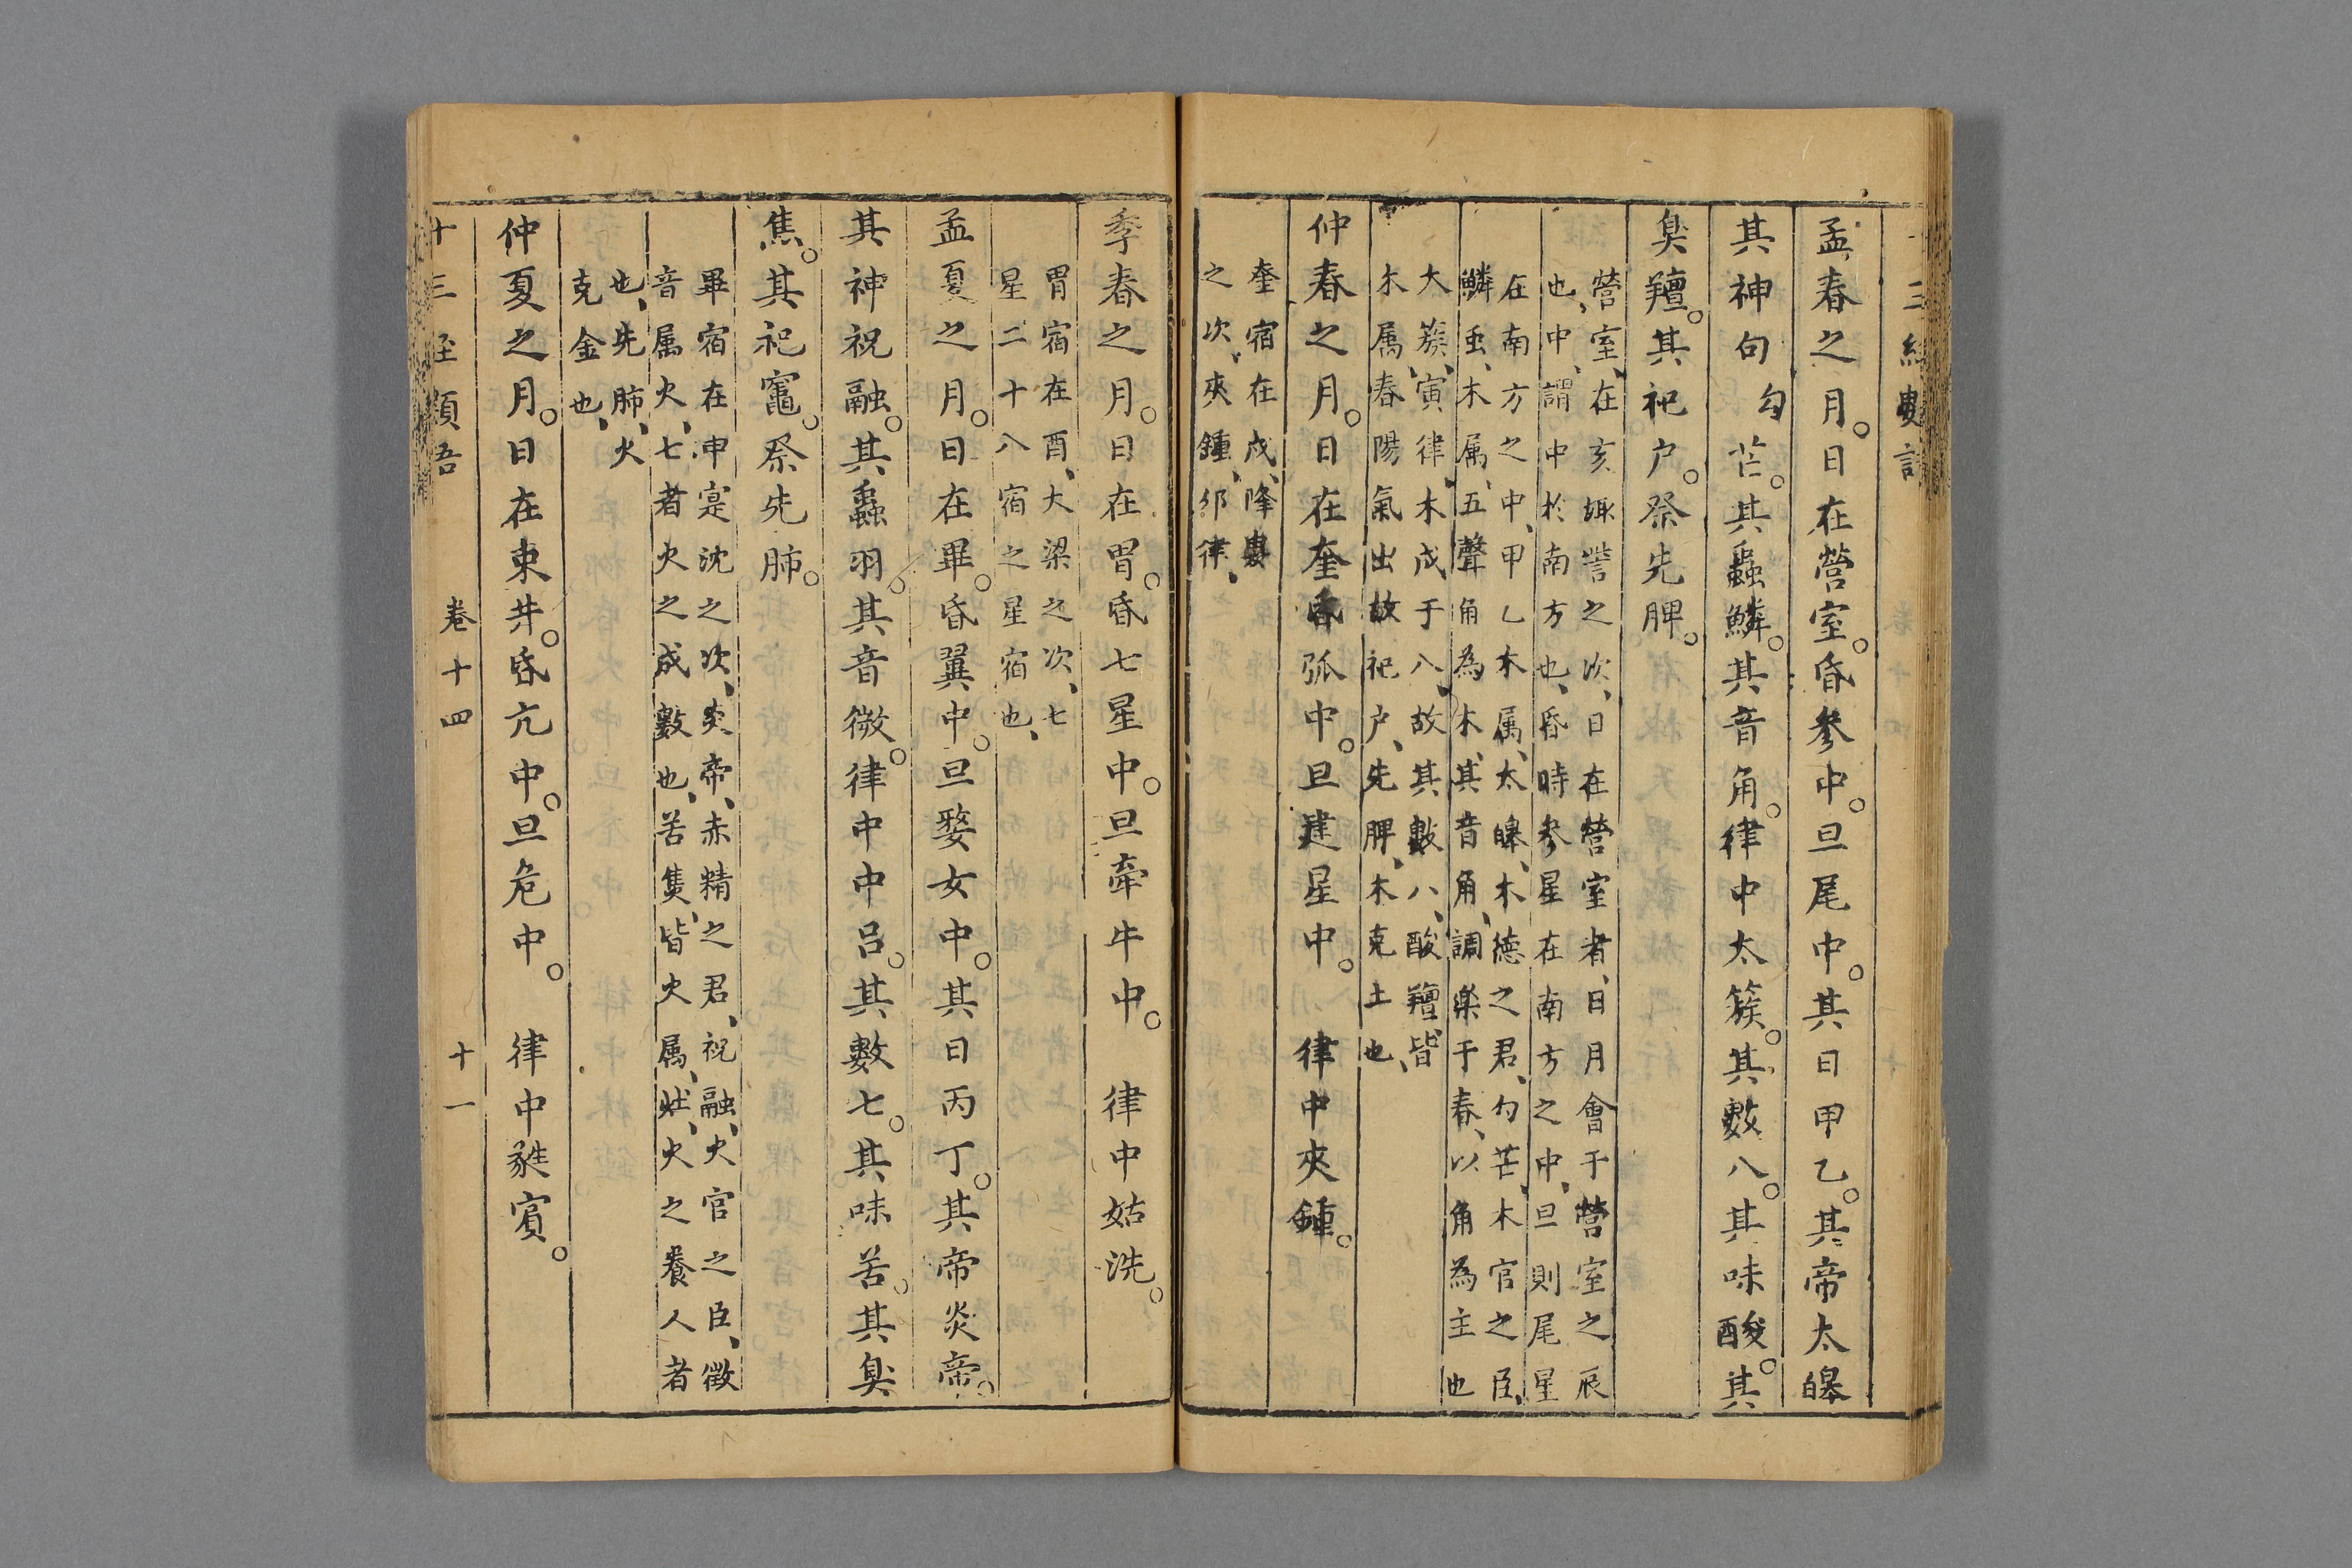 孟春之月。日在營室。昏參中。旦尾中。其日甲乙。其帝太皞
其神句勾芒。其蟲鱗。其音角。律中太簇。其數八。其味酸。其
臭羶。其祀户。祭先脾。
營室、在亥娵訾之次、日在營室者、日月會于營室之辰
也、中、謂中於南方也、昏時參星在南方之中、旦則尾星
在南方之中、甲乙木属、太皞、木德之君、勾芒、木官之臣、
鱗虫、木属、五聲角為木、其音角、調樂于春、以角為主也
大蔟、寅律、木成于八、故其數八、酸羶、皆
木属、春陽氣出故祀户、先脾、木克土也、
仲春之月。日在奎昏弧中。旦建星中。　律中夾鍾。
奎宿在戌、降婁
之次、夾鍾、卯律、
季春之月。日在胃。昏七星中。旦牽牛中。　律中姑洗。
胃宿在酉、大梁之次、七
星二十八宿之星宿也、
孟夏之月。日在畢。昏翼中。旦婺女中。其日丙丁。其帝炎帝。
其神祝融。其蟲羽。其音微。律中中呂。其數七。其味苦。其臭
焦。其祀竈。祭先肺。
畢宿在申寔沈之次、炎帝、赤精之君、祝融、火官之臣、徵
音属火、七者火之成數也、苦隻、皆火属、灶、火之養人者
也、先肺、火
克金也、
仲夏之月。日在東井。昏亢中。旦危中。　律中蕤賓。
卷十四　十一